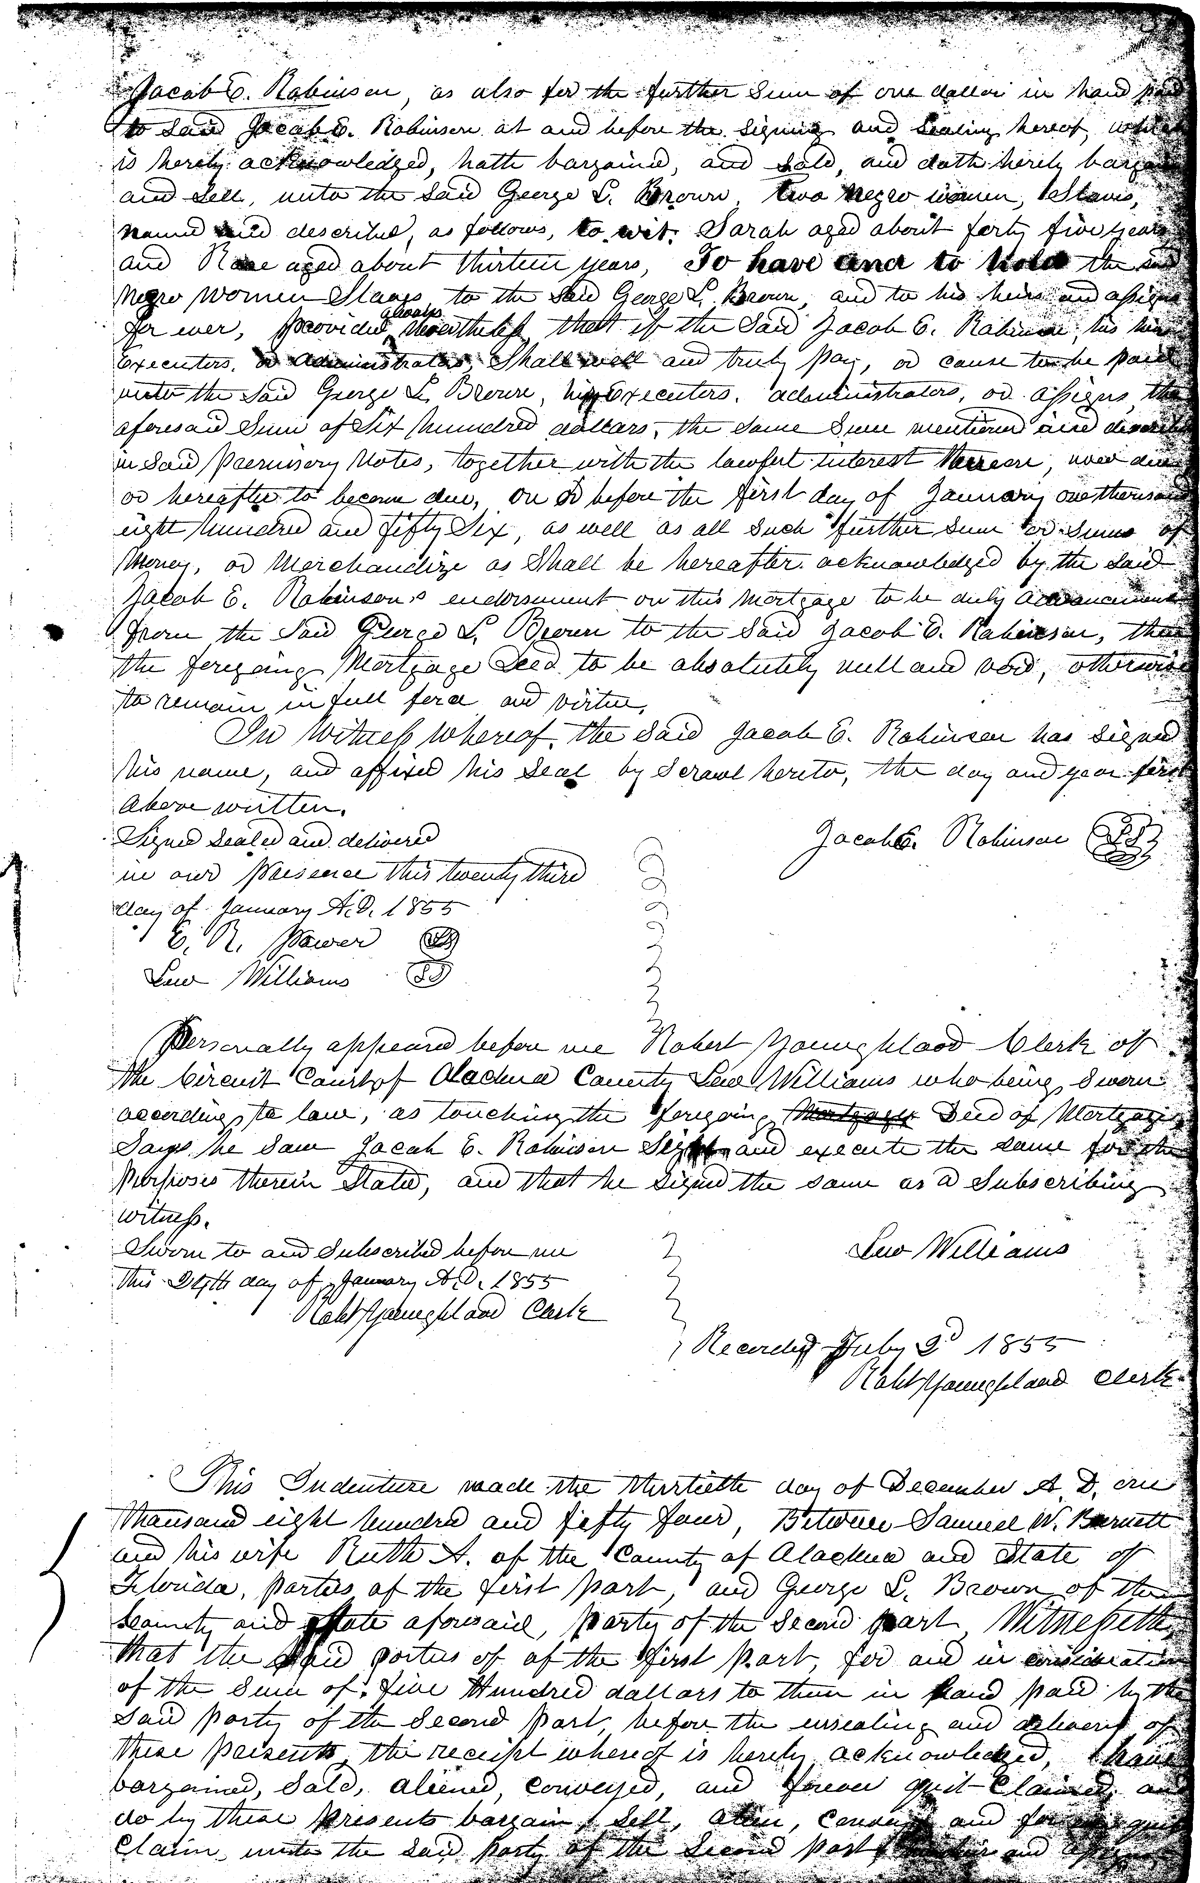 Jacob E. Robinson, as also for the further Sum of one dollar in hand paid
to Said Jacob E. Robinson at and before the signing and Sealing hereof, which
is hereby acknowledged, hath bargained, and Sold, and doth hereby bargain
and Sell, unto the said George L. Brown, two negro women, Slaves,
named and described, as follows, to wit. Sarah aged about forty five years
and Rose aged about thirteen years, To have and to hold the said
Negro Women Slaves, to the Said George L. Brown, and to his heirs and assigns
for ever, provided always nevertheless, that if the Said Jacob E. Robinson, his heirs
Executors, or administrators, Shall well and truly pay, or cause to be paid
unto the Said George L. Brown, his Executors, administrators, or assigns, the
aforesaid Sum of Six hundred dollars, the same Sum mentioned and described
in Said Promisory Notes, together with the lawful interest thereon, now due
or hereafter to become due, on or before the first day of January one thousand
eight hundred and fifty Six, as well as all such further sum or sums of
Money, or Merchandize as Shall be hereafter acknowledged by the Said
Jacob E. Robinson's endorsement on this Mortgage to be duly advancement
from the Said George L. Brown to the Said Jacob E. Robinson, then
the foregoing Mortgage Deed to be absolutely null and void, otherwise
to remain in full force and virtue.
In Witness Whereof, the Said Jacob E. Robinson has signed
his name, and affixed his Seal by Scrawl hereto, the day and year first
above written.
Signed Sealed and delivered
Jacob E. Robinson LS
in our presence this twenty third
day of January A.D. 1855
E. R. Power LS
Lew Williams LS
Personally appeared before me Robert Youngblood Clerk of
the Circuit Court of Alachua County Lew Williams who being Sworn
according to law, as touching the foregoing Mortgage Deed of Mortgage
Says he Saw Jacob E. Robinson Sign and execute the same for the
purposes therein Stated, and that he signed the same as a Subscribing
witness.
Sworn to and Subscribed before me
Lew Williams
this 24th day of January A.D. 1855
Robt Youngblood Clerk
Recorded July 2d 1855
Robt Youngblood Clerk
This Indenture made the thirtieth day of December A.D. one
thousand eight hundred and fifty four, Between Samuel W. Burnett
and his wife Ruth A. of the County of Alachua and State of
Florida, parties of the first part, and George L. Brown of the
County and State aforesaid, party of the Second part, Witnesseth,
that the Said parties of of the first part, for and in consideration
of the Sum of five Hundred dollars to them in hand paid by the
Said party of the Second part, before the ensealing and delivery of
these presents, the receipt whereof is hereby acknowledged, have
bargained, Sold, aliened, conveyed, and forever quit-Claimed, and
do by these presents bargain, Sell, alien, convey and forever quit
Claim, unto the said party of the Second part heirs and assigns